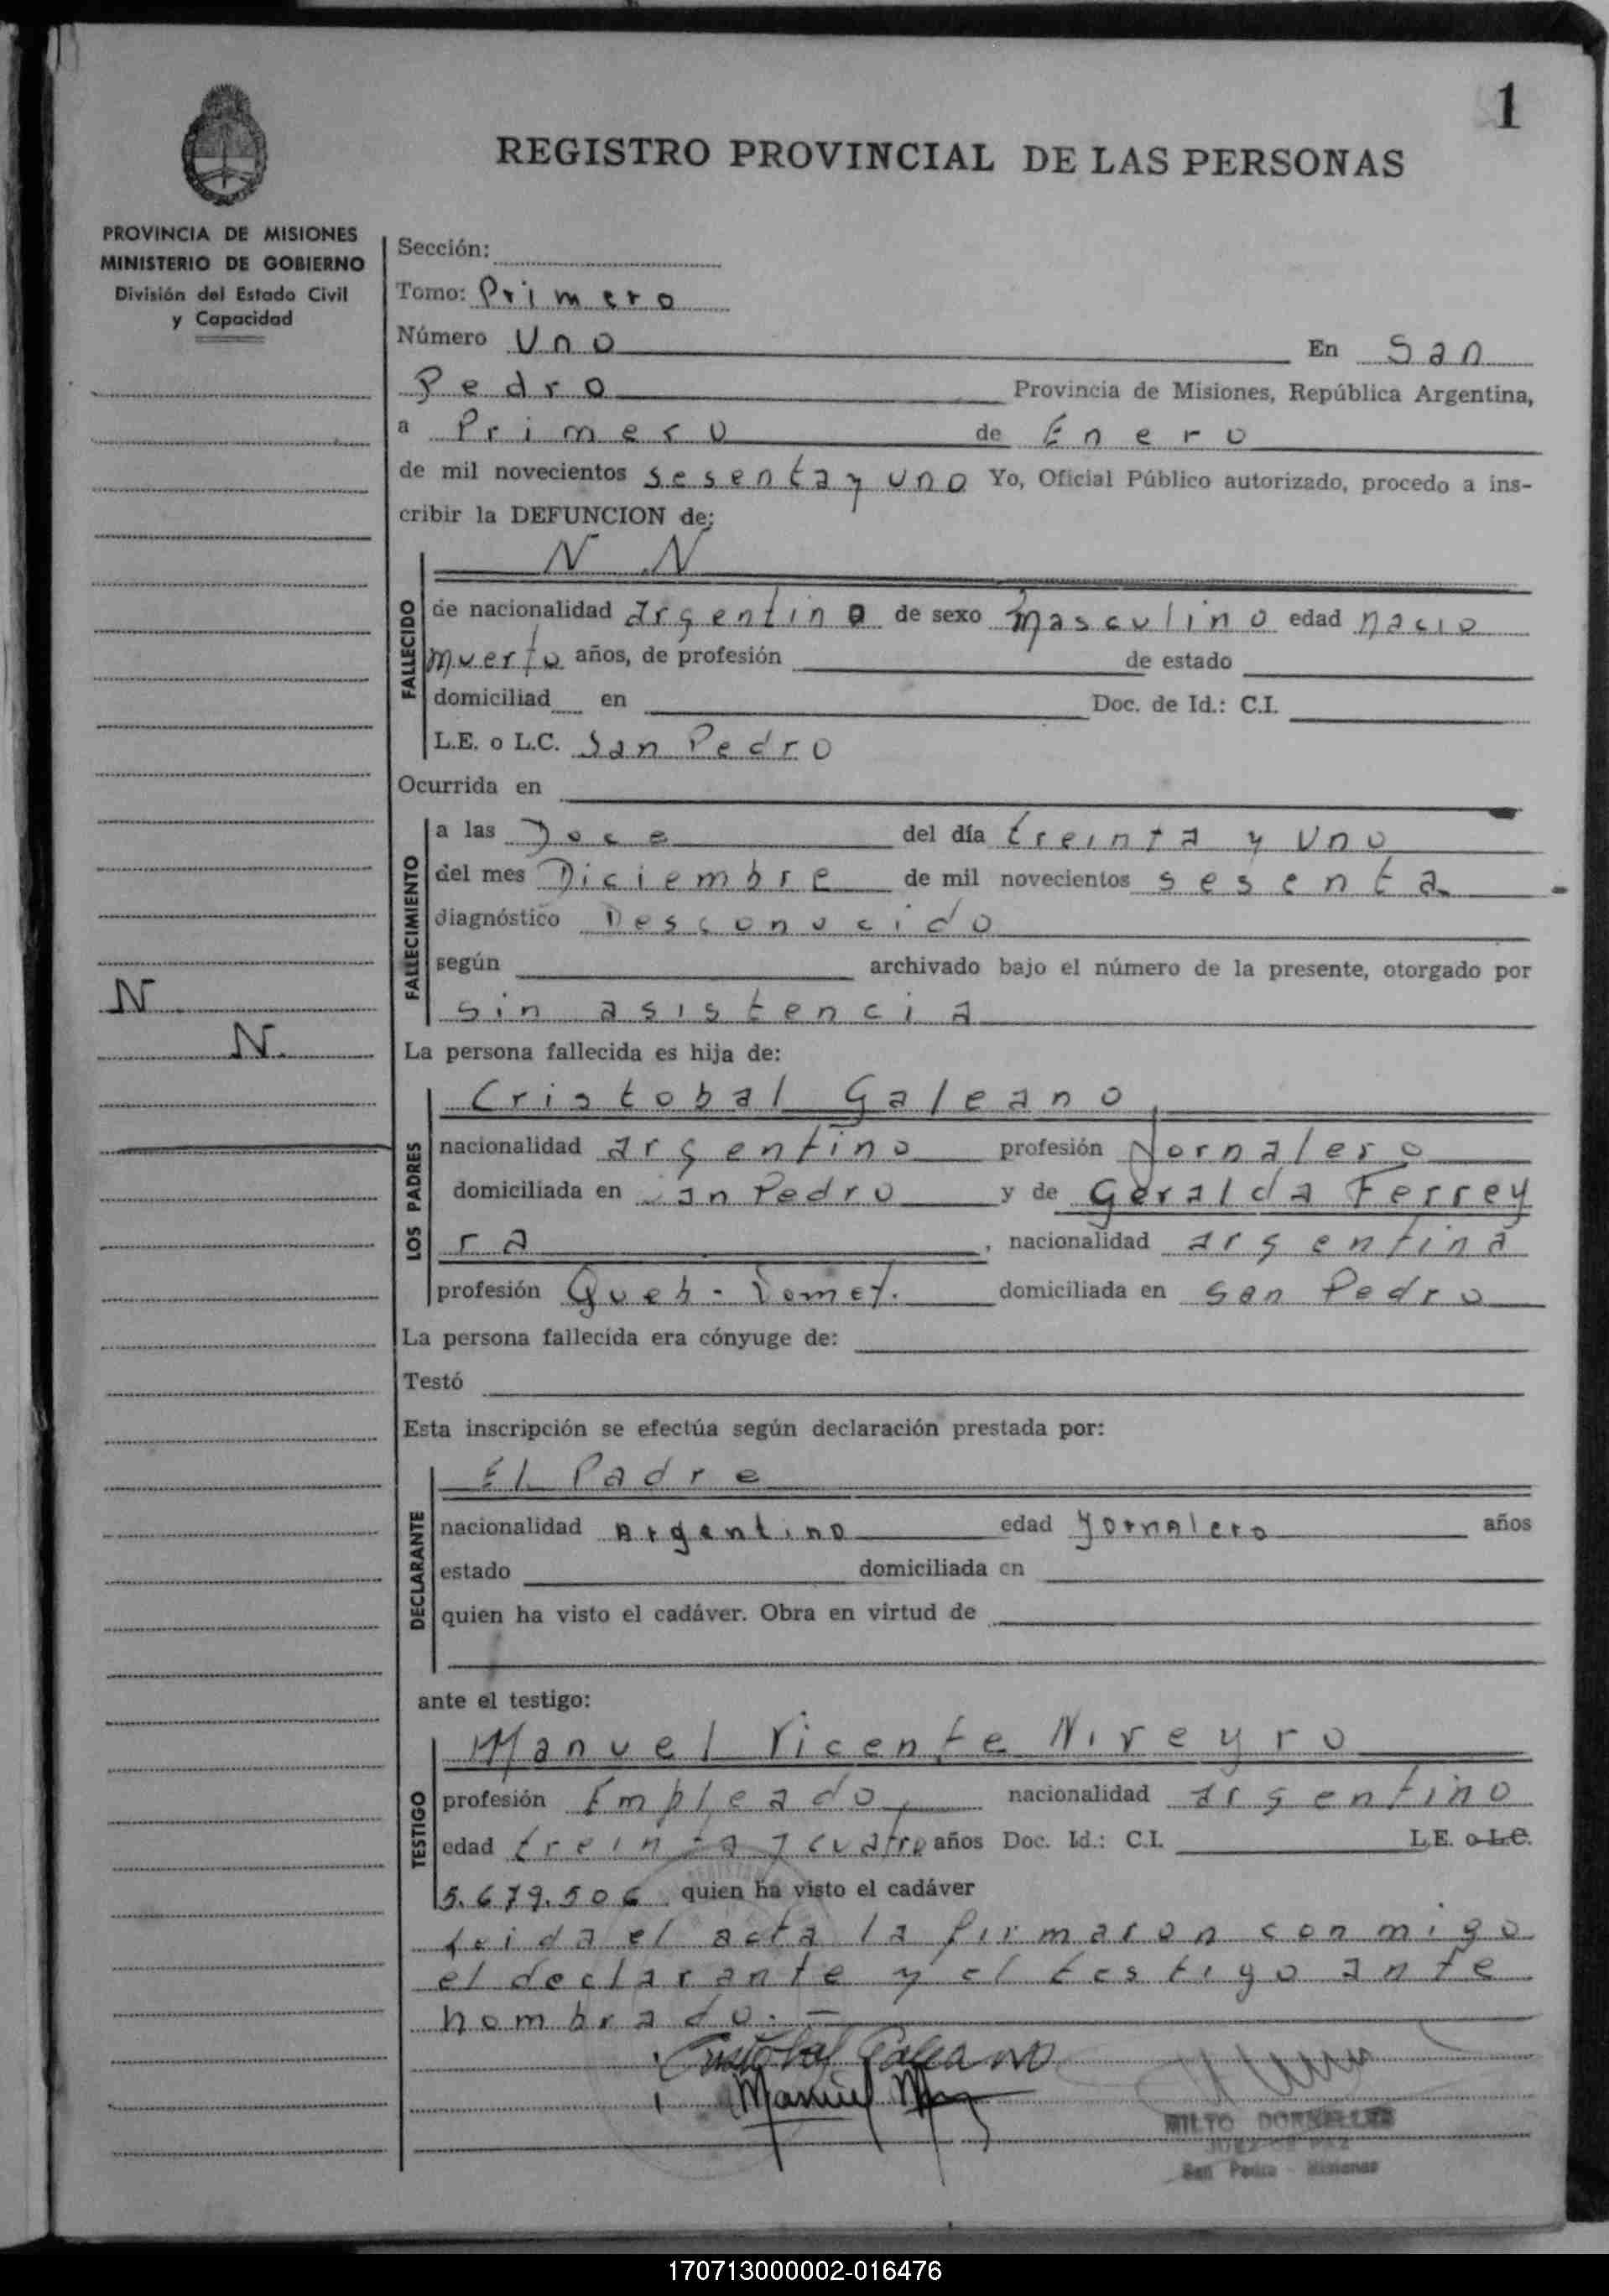 1
REGISTRO PROVINCIAL DE LAS PERSONAS
PROVINCIA DE MISIONES
MINISTERIO DE GOBIERNO
División del Estado Civil
y Capacidad
Sección:
Tomo: Primero
Número Uno En San
Pedro Provincia de Misiones, República Argentina,
a Primero de Enero
de mil novecientos sesenta y uno Yo, Oficial Público autorizado, procedo a ins-
cribir la DEFUNCION de:
N N
FALLECIDO
de nacionalidad argentino de sexo masculino edad nacio
muerto años, de profesión de estado
domiciliad en Doc. de Id.: C.I.
L.E. o L.C. San Pedro
Ocurrida en
FALLECIMIENTO
a las Doce del día treinta y uno
del mes Diciembre de mil novecientos sesenta
diagnóstico Desconocido
según archivado bajo el número de la presente, otorgado por
sin asistencia
N
N.
La persona fallecida es hija de:
LOS PADRES
Cristobal Galeano,
nacionalidad argentino profesión Jornalero
domiciliada en San Pedro y de Geralda Ferrey
ra, nacionalidad argentina
profesión Queh-Domet. domiciliada en San Pedro
La persona fallecida era cónyuge de:
Testó
Esta inscripción se efectúa según declaración prestada por:
DECLARANTE
El Padre
nacionalidad Argentino edad Yornalero años
estado domiciliada en
quien ha visto el cadáver. Obra en virtud de
ante el testigo:
TESTIGO
Manuel Vicente Niveyro
profesión Empleado, nacionalidad argentino
edad treinta y cuatro años Doc. Id.: C.I. L.E. o L.C.
5.679.506 quien ha visto el cadáver
Leida el acta la firmaron conmigo
el declarante y el testigo ante
nombrado. =
Cristobal Galeano
Manuel
MILTO DORNELLES
JUEZ DE PAZ
San Pedro - Misiones
170713000002-016476